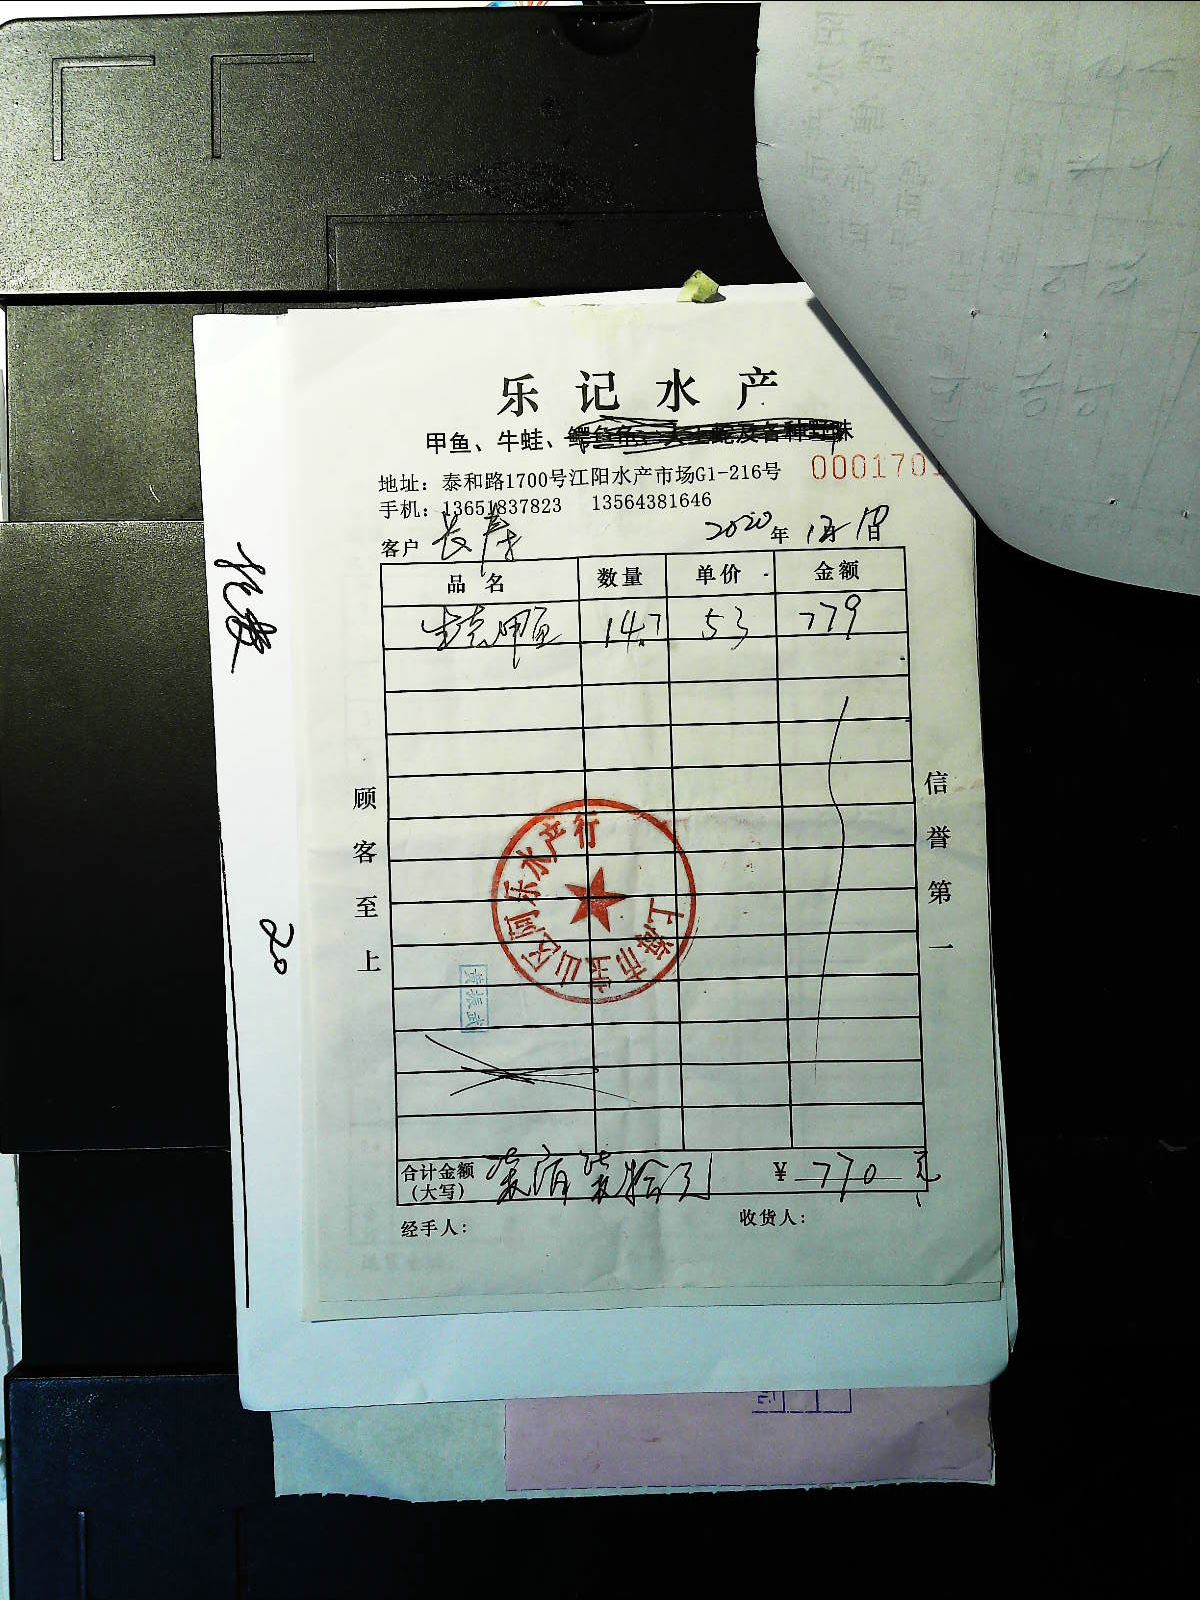 乐记水产
甲鱼、牛蛙、
地址：泰和路1700号江阳水产市场G1-216号
000170
手机：13651837823 13564381646
客户 长寿 2020年12月1日
品名 数量 单价 金额
生态甲鱼 14.7 53 779
顾客至上
信誉第一
上海市宝山区阿乐水产行
黄振武
20
合计金额(大写) 柒佰柒拾元 ¥ 770 元
经手人：
收货人：